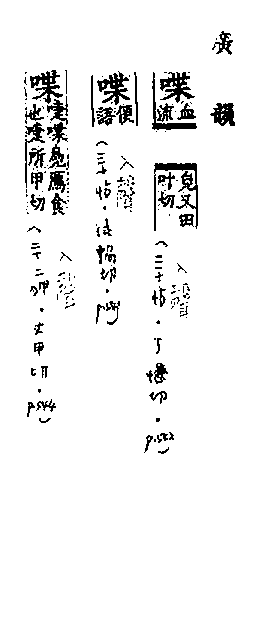 廣韻
喋 血流 皃又田叶切 入聲 (三十怗．丁愜切．p.
喋 便語 入聲 (三十怗．徒協切．p.
喋 唼喋鳧鴈食也唼所甲切 入聲 (三十二狎．丈甲切．p.544)